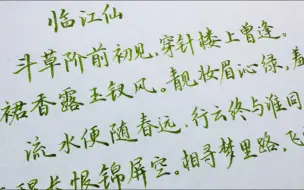 临江仙
斗草阶前初见,穿针楼上曾逢。
裙香露玉钗风。靓妆眉沁绿,羞
流水便随春远,行云终与谁同
长恨锦屏空。相寻梦里路,飞